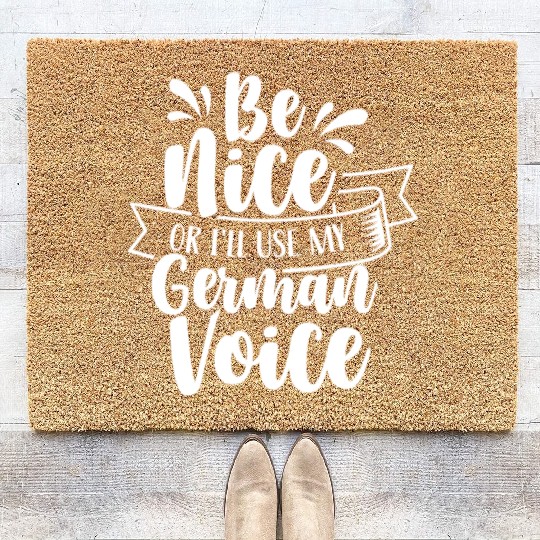 Be
Nice
OR I'LL USE MY
German
Voice